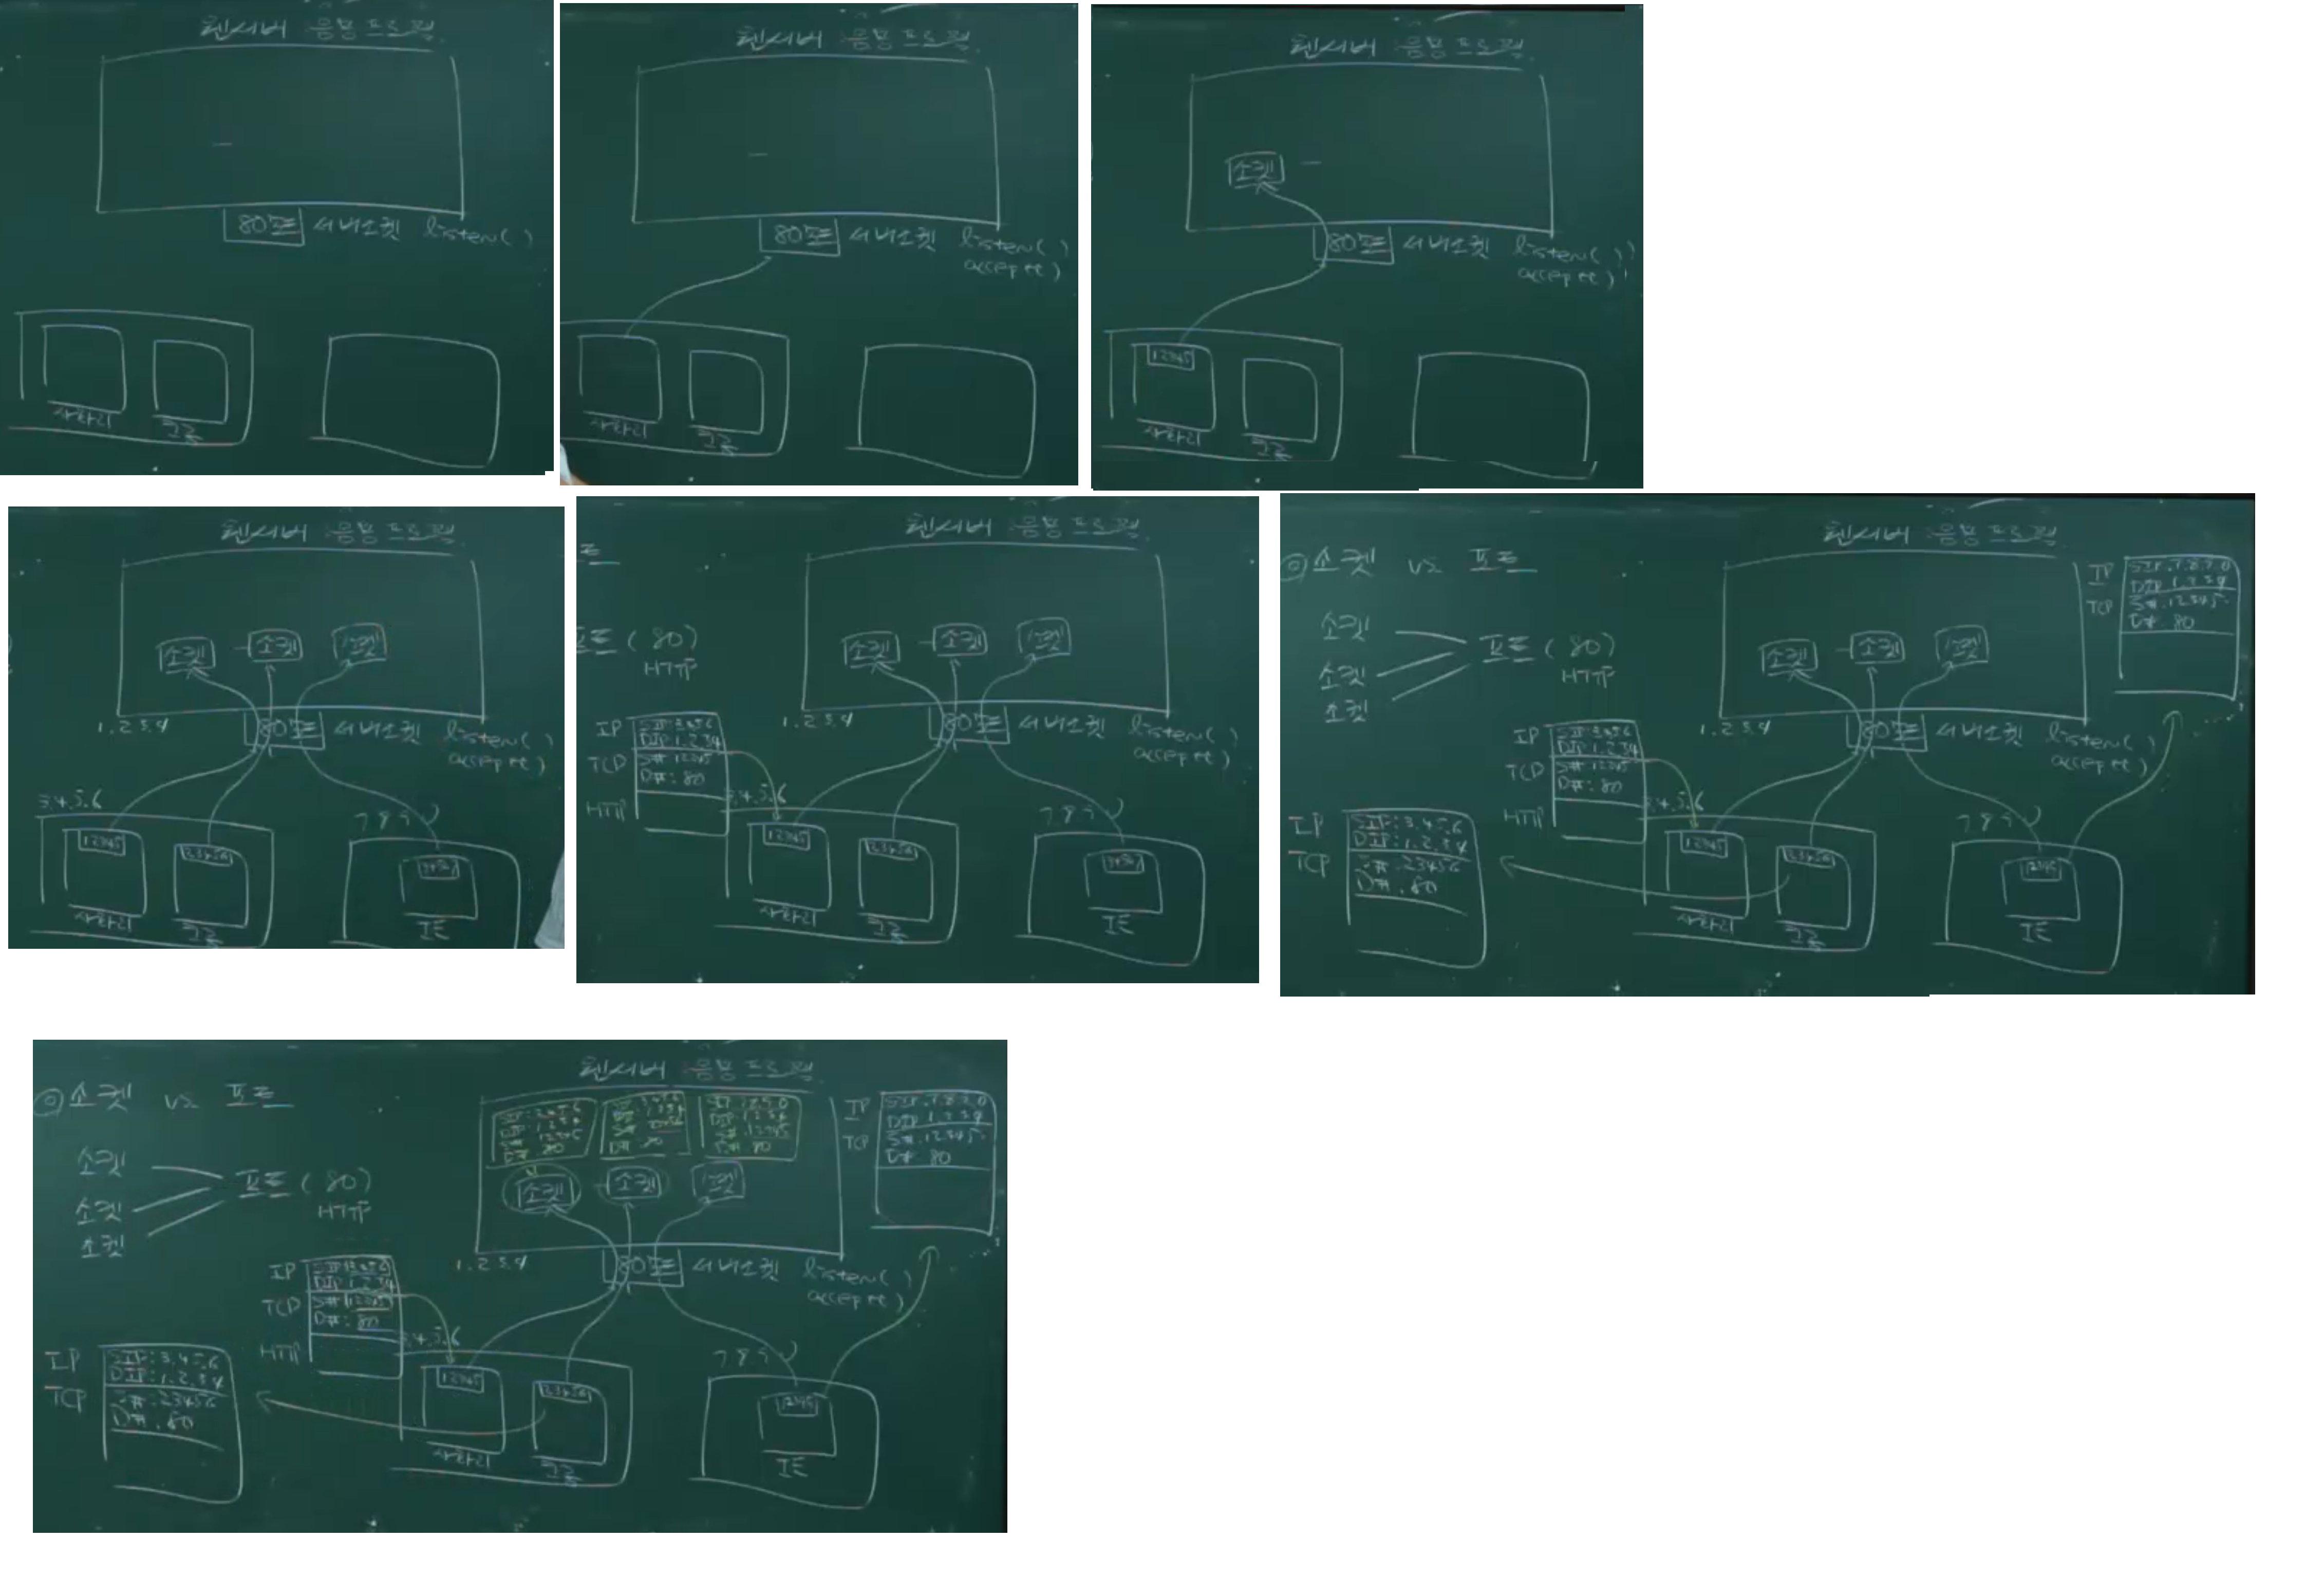 웹서버 응용프로그램
80포트 서버소켓 listen( )
사파리
크롬
웹서버 응용프로그램
80포트 서버소켓 listen( )
accept( )
사파리
크롬
웹서버 응용프로그램
소켓
80포트 서버소켓 listen( )
accept( )
12345
사파리
크롬
웹서버 응용프로그램
소켓 소켓 소켓
1.2.3.4
80포트 서버소켓 listen( )
accept( )
3.4.5.6
7.8.9.0
12345
23456
사파리
크롬
IE
웹서버 응용프로그램
포트 ( 80 )
HTTP
소켓 소켓 소켓
1.2.3.4
80포트 서버소켓 listen( )
accept( )
IP
SIP: 3.4.5.6
DIP: 1.2.3.4
TCP
S#: 12345
D#: 80
HTTP
3.4.5.6
7.8.9.0
12345
23456
사파리
크롬
IE
◎ 소켓 vs 포트
웹서버 응용프로그램
소켓
소켓
소켓
포트 ( 80 )
HTTP
IP
SIP: 7.8.9.0
DIP: 1.2.3.4
TCP
S#: 12345
D#: 80
소켓 소켓 소켓
1.2.3.4
80포트 서버소켓 listen( )
accept( )
IP
SIP: 3.4.5.6
DIP: 1.2.3.4
TCP
S#: 12345
D#: 80
HTTP
3.4.5.6
7.8.9.0
IP
SIP: 3.4.5.6
DIP: 1.2.3.4
TCP
S#: 23456
D#: 80
12345
23456
12345
사파리
크롬
IE
◎ 소켓 vs 포트
웹서버 응용프로그램
소켓
소켓
소켓
포트 ( 80 )
HTTP
SIP: 3.4.5.6
DIP: 1.2.3.4
S#: 12345
D#: 80
D#: 80
SIP: 7.8.9.0
DIP: 1.2.3.4
S#: 12345
D#: 80
IP
SIP: 7.8.9.0
DIP: 1.2.3.4
TCP
S#: 12345
D#: 80
소켓 소켓 소켓
1.2.3.4
80포트 서버소켓 listen( )
accept( )
IP
SIP: 3.4.5.6
DIP: 1.2.3.4
TCP
S#: 12345
D#: 80
HTTP
3.4.5.6
7.8.9.0
IP
SIP: 3.4.5.6
DIP: 1.2.3.4
TCP
S#: 23456
D#: 80
12345
23456
12345
사파리
크롬
IE